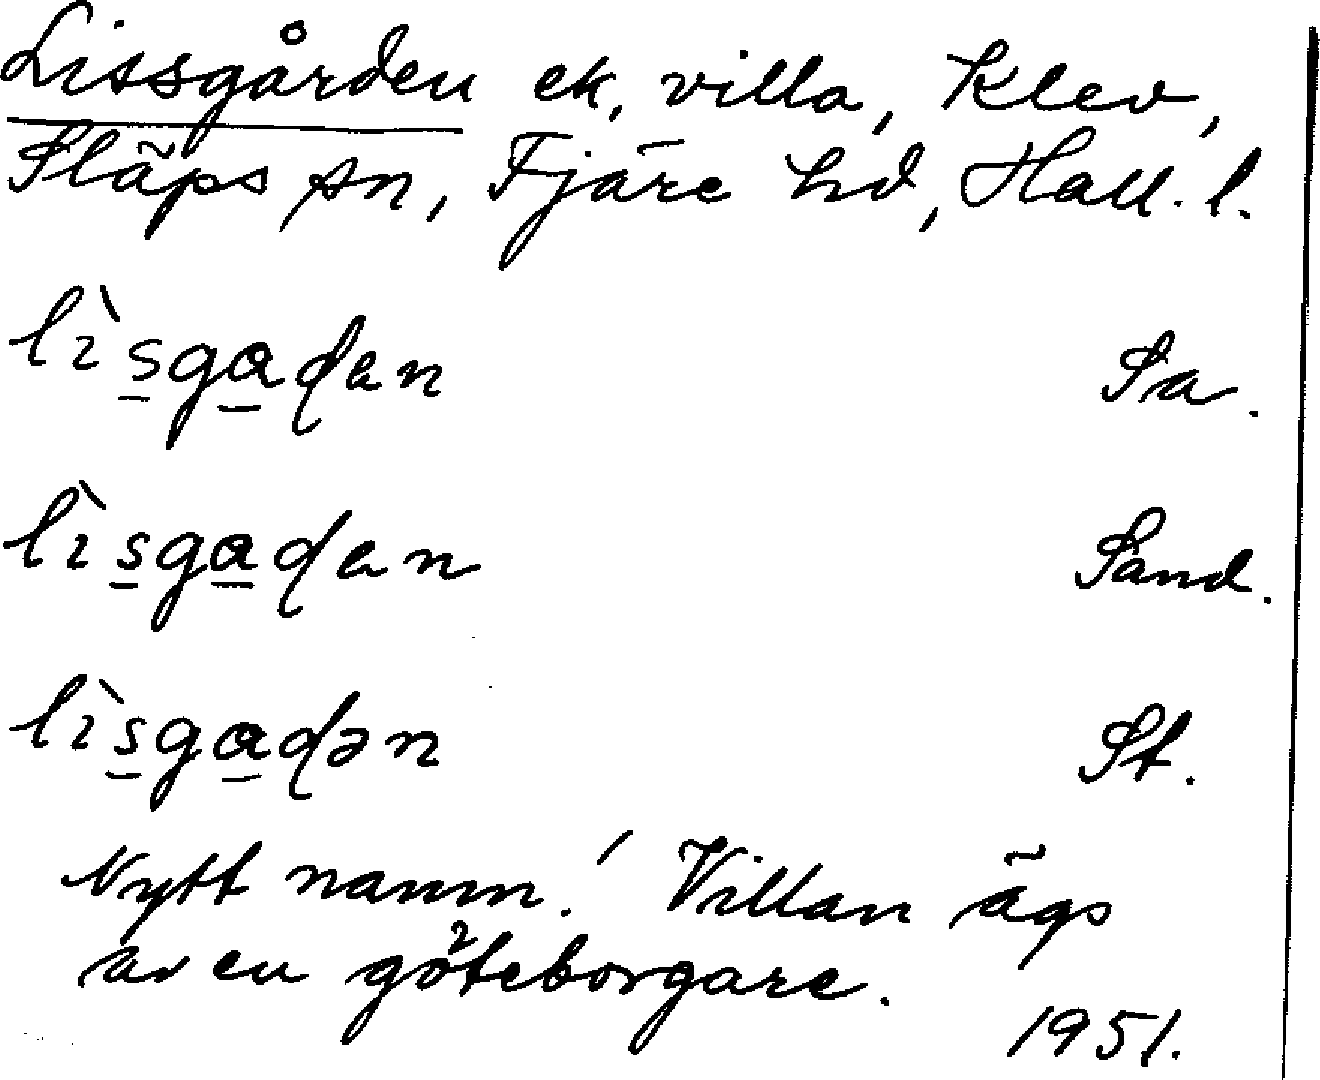 Lissgården ek, villa, Klev,
Släps sn, Fjäre hd, Hall. l.
lìsgaḍen Sa.
lìsgaḍen Sand.
lìsgaḍən St.
Nytt namn! Villan ägs
av en göteborgare.
1951.